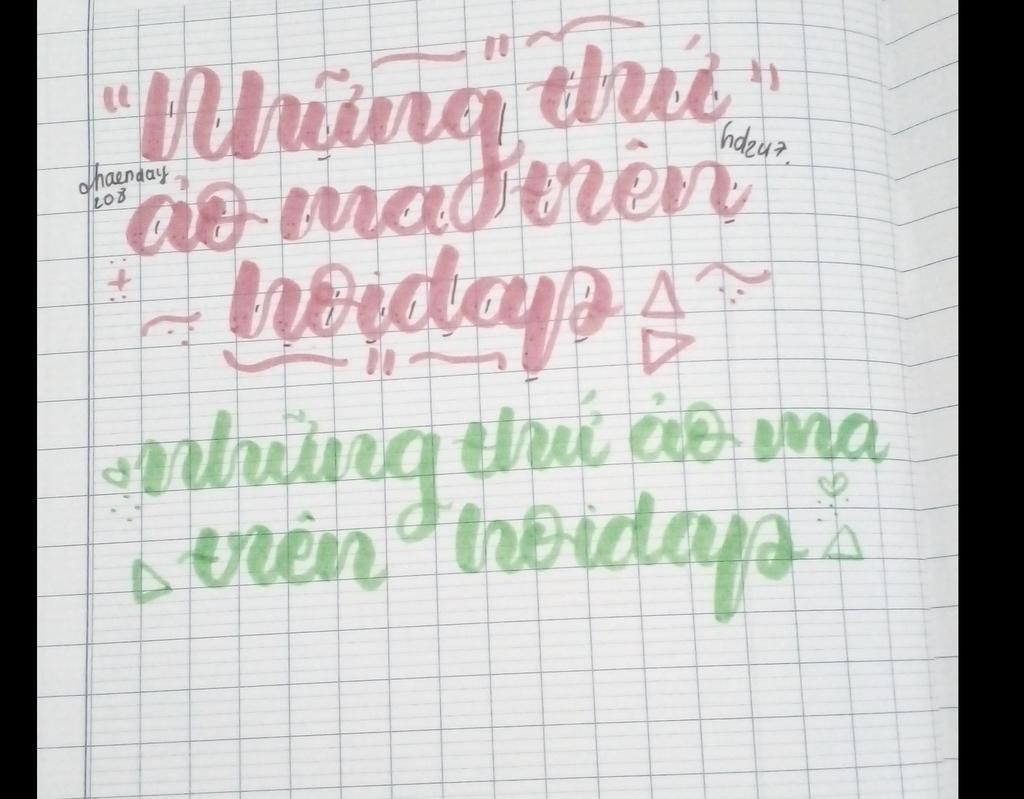 "Những thứ"
hd247.
ảo ma trên
hoidap
những thứ ảo ma
trên hoidap